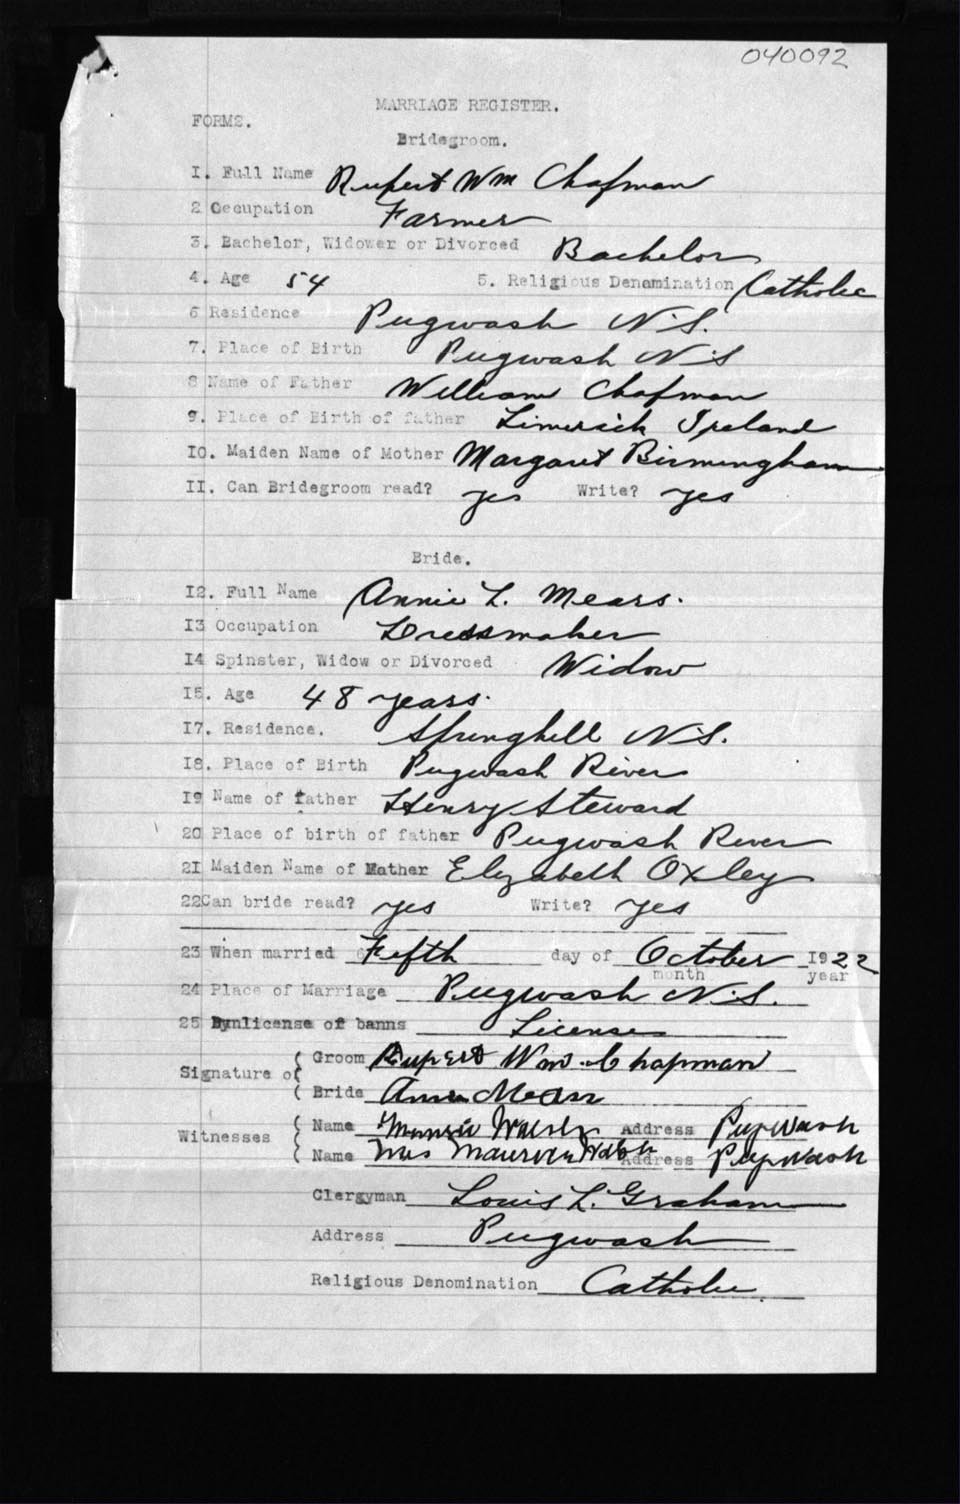 040092
MARRIAGE REGISTER.
FORMS.
Bridegroom.
I. Full Name Rupert Wm Chapman
2 Occupation Farmer
3. Bachelor, Widower or Divorced Bachelor
4. Age 54 5. Religious Denomination Catholic
6 Residence Pugwash N.S.
7. Place of Birth Pugwash N.S
8 Name of Father William Chapman
9. Place of Birth of father Limerick Ireland
IO. Maiden Name of Mother Margaret Birmingham
II. Can Bridegroom read? yes Write? yes
Bride.
I2. Full Name Annie L. Mears.
I3 Occupation Dressmaker
I4 Spinster, Widow or Divorced Widow
I5. Age 48 years.
I7. Residence. Springhill N.S.
I8. Place of Birth Pugwash River
I9 Name of father Henry Steward
20 Place of birth of father Pugwash River
2I Maiden Name of Mather Elizabeth Oxley
22Can bride read? yes Write? yes
23 When married Fifth day of October 1922
month year
24 Place of Marriage Pugwash N.S.
25 license or banns License
Signature of Groom Rupert Wm. Chapman
Bride Annie Mears
Witnesses Name Walsh Address Pugwash
Name Mrs Walsh Address Pugwash
Clergyman Louis L. Graham
Address Pugwash
Religious Denomination Catholic